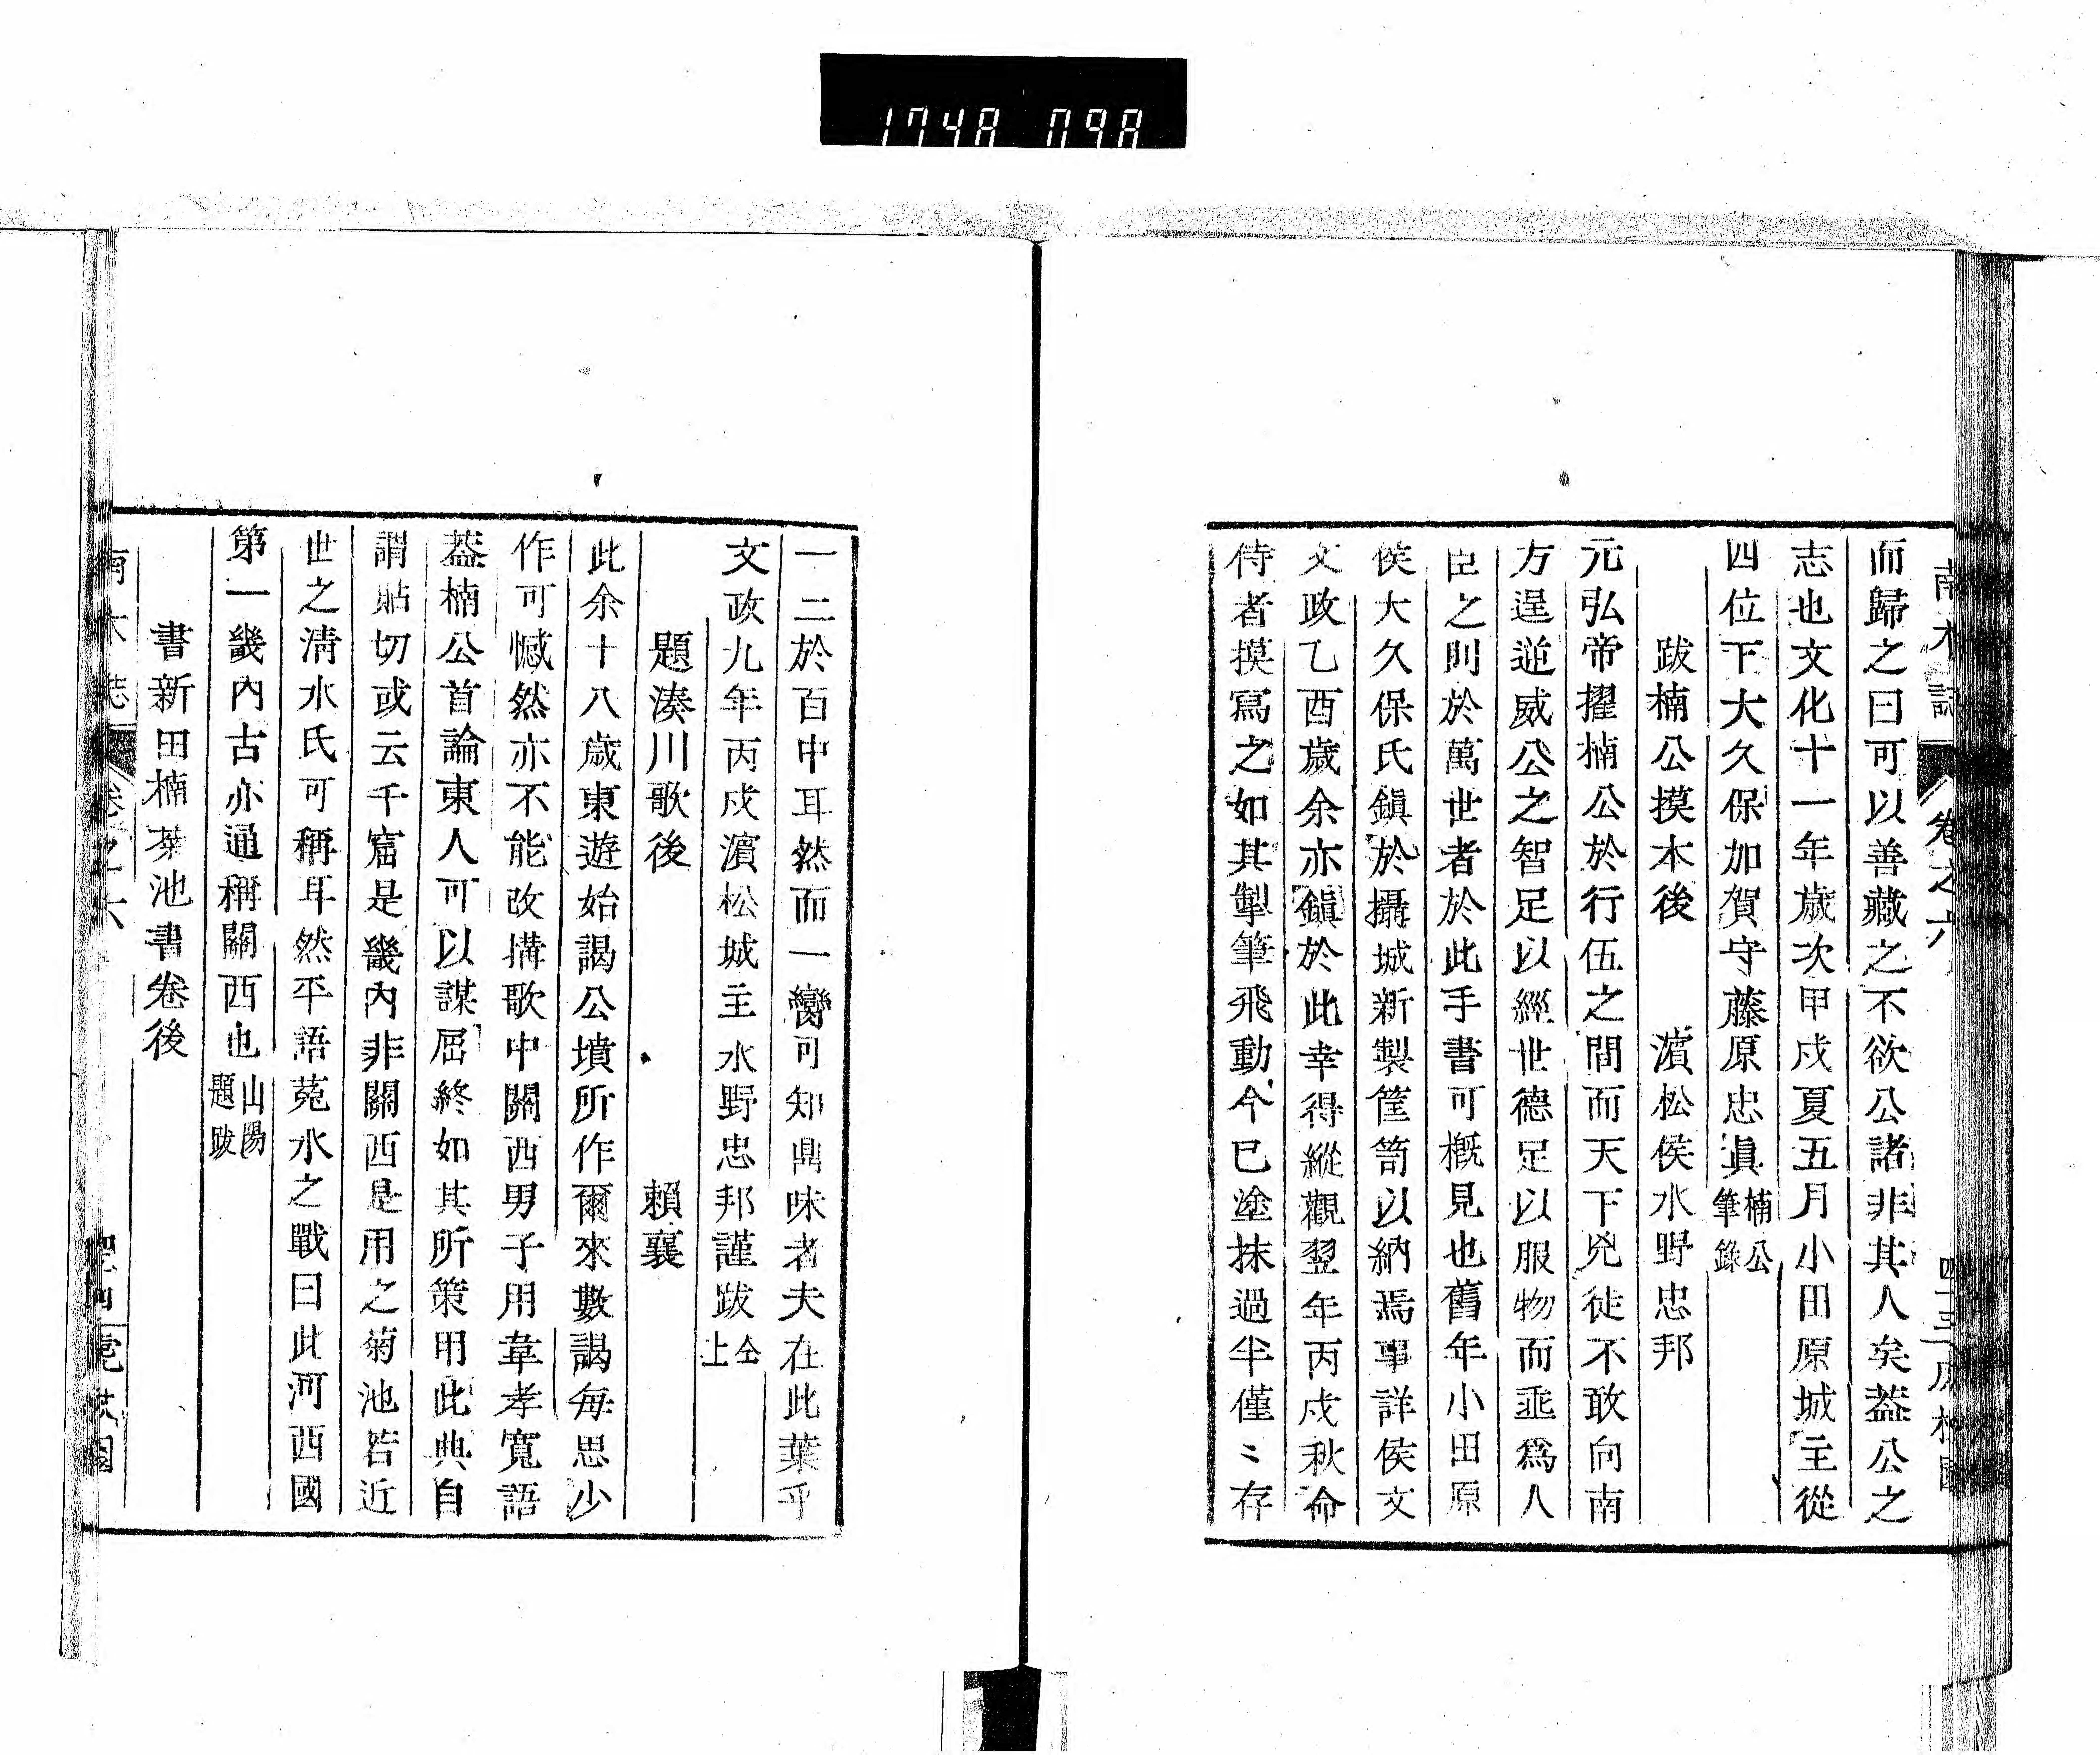 1748 098
南木誌 卷之六
而歸之曰可以善藏之不欲公諸非其人矣葢公之
志也文化十一年歲次甲戌夏五月小田原城主從
四位下大久保加賀守藤原忠眞楠公筆錄
跋楠公摸本後 濵松侯水野忠邦
元弘帝擢楠公於行伍之間而天下兇徒不敢向南
方逞逆威公之智足以經世德足以服物而亟爲人
臣之則於萬世者於此手書可概見也舊年小田原
侯大久保氏鎭於攝城新製筐笥以納焉事詳侯文
文政乙酉歲余亦鎭於此幸得縱觀翌年丙戌秋命
侍者摸寫之如其掣筆飛動今已塗抹過半僅〻存
一二於百中耳然而一臠可知鼎味者夫在此葉乎
文政九年丙戌濵松城主水野忠邦謹跋仝上
題湊川歌後 賴襄
此余十八歲東遊始謁公墳所作爾來數謁每思少
作可憾然亦不能改搆歌中關西男子用韋孝寬語
葢楠公首論東人可以謀屈終如其所策用此典自
謂貼切或云千窟是畿內非關西是用之菊池若近
世之淸水氏可稱耳然平語菟水之戰曰此河西國
第一畿內古亦通稱關西也山陽題跋
書新田楠菊池書卷後
南木誌 卷之六